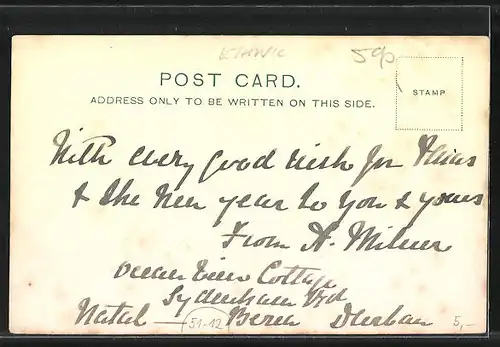 ETHNIC
59p
POST CARD.
ADDRESS ONLY TO BE WRITTEN ON THIS SIDE.
STAMP
With every good wish for Xmas
& the New year to you & yours
From A. Milner
Ocean View Cottage
Sydenham Rd
Natal — Berea Durban
51-12
5,-